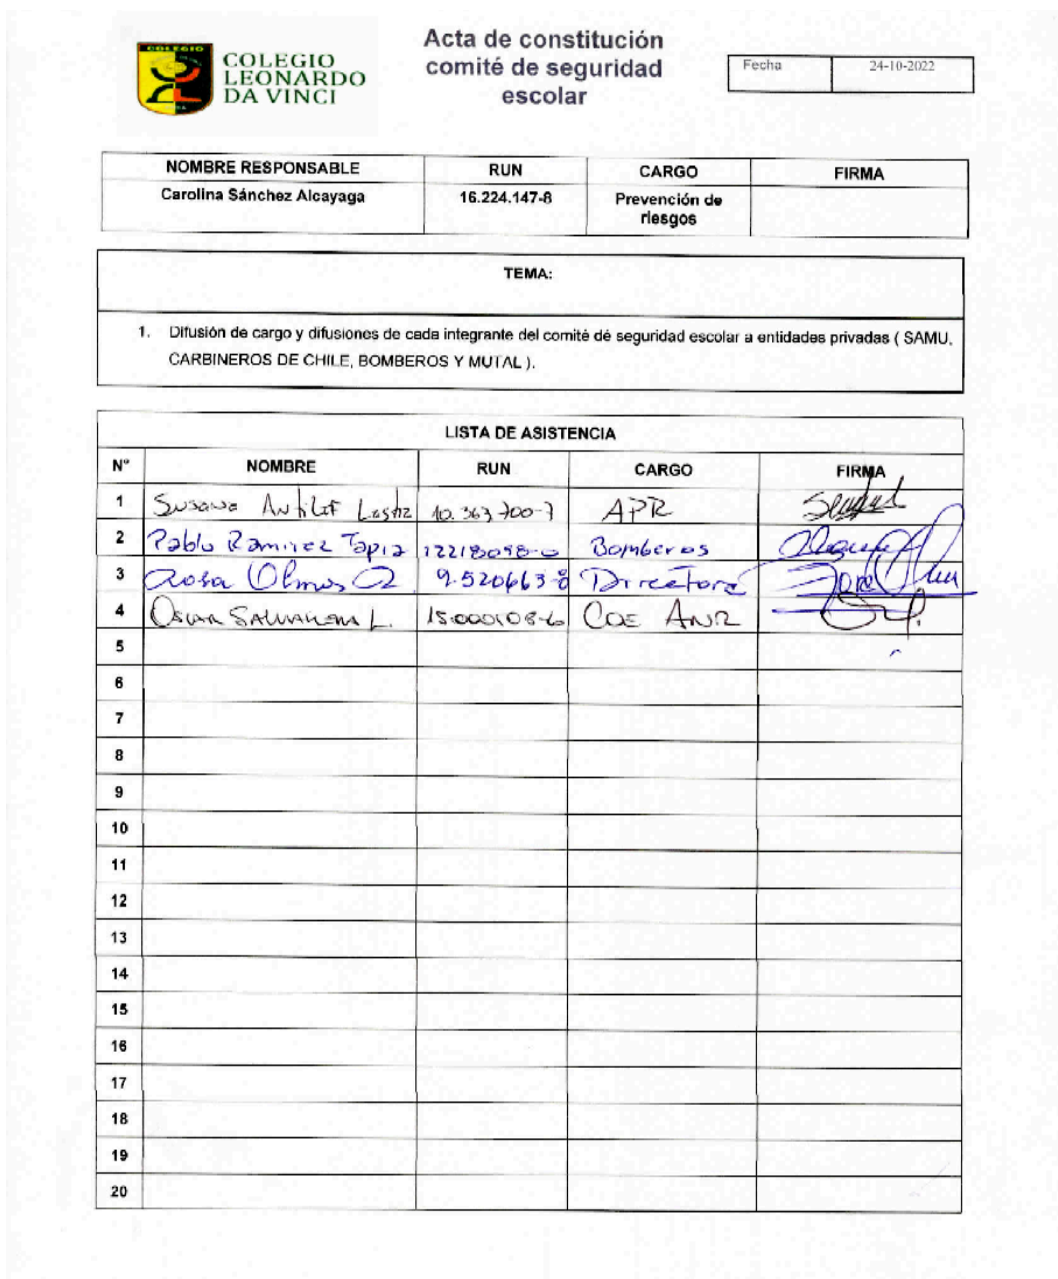 COLEGIO
COLEGIO
LEONARDO
DA VINCI
Acta de constitución
comité de seguridad
escolar
Fecha 24-10-2022
NOMBRE RESPONSABLE RUN CARGO FIRMA
Carolina Sánchez Alcayaga 16.224.147-8 Prevención de
riesgos
TEMA:
1. Difusión de cargo y difusiones de cada integrante del comité de seguridad escolar a entidades privadas ( SAMU,
CARBINEROS DE CHILE, BOMBEROS Y MUTAL ).
LISTA DE ASISTENCIA
N° NOMBRE RUN CARGO FIRMA
1 Susana 10.363.700-7 APR
2 Pablo Ramirez Tapia 12218098-0 Bomberos
3 Rosa Olmos 9.520663-8 Directora
4 Oscar L. 15.000108-6 COE
5
6
7
8
9
10
11
12
13
14
15
16
17
18
19
20